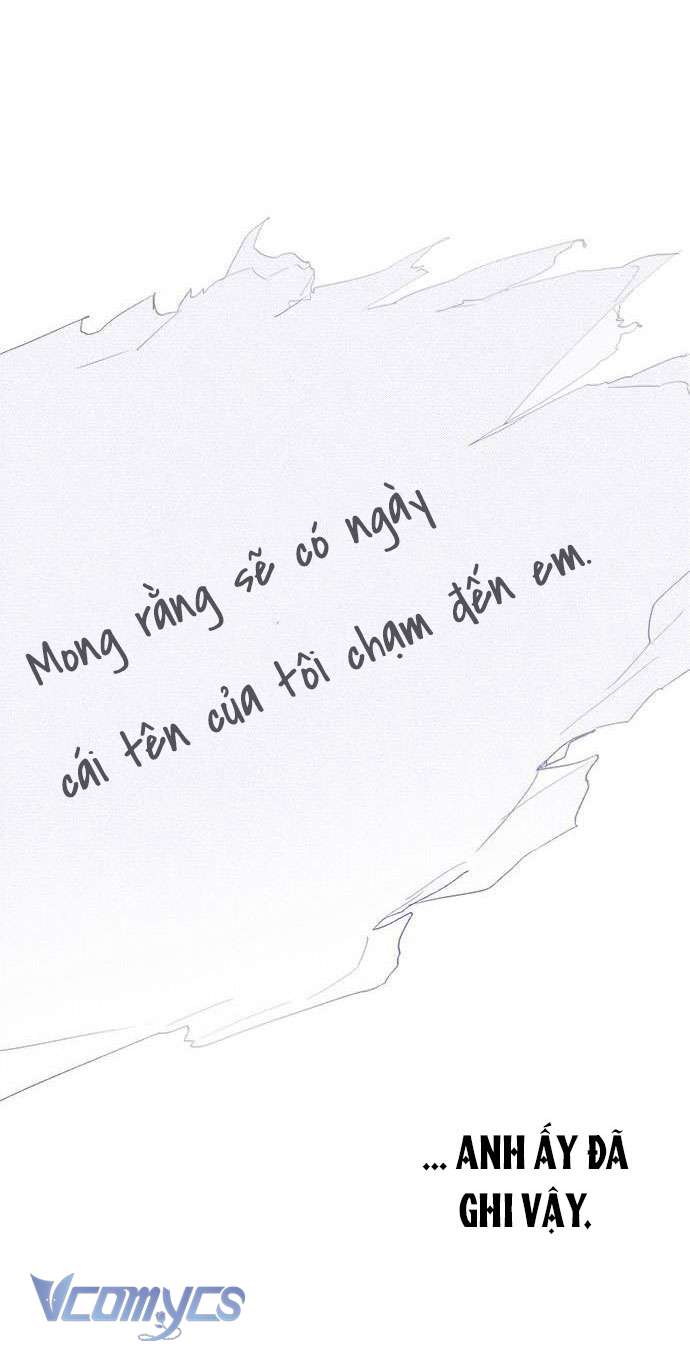 Mong rằng sẽ có ngày
cái tên của tôi chạm đến em.
... ANH ẤY ĐÃ
GHI VẬY.
VCOMYCS